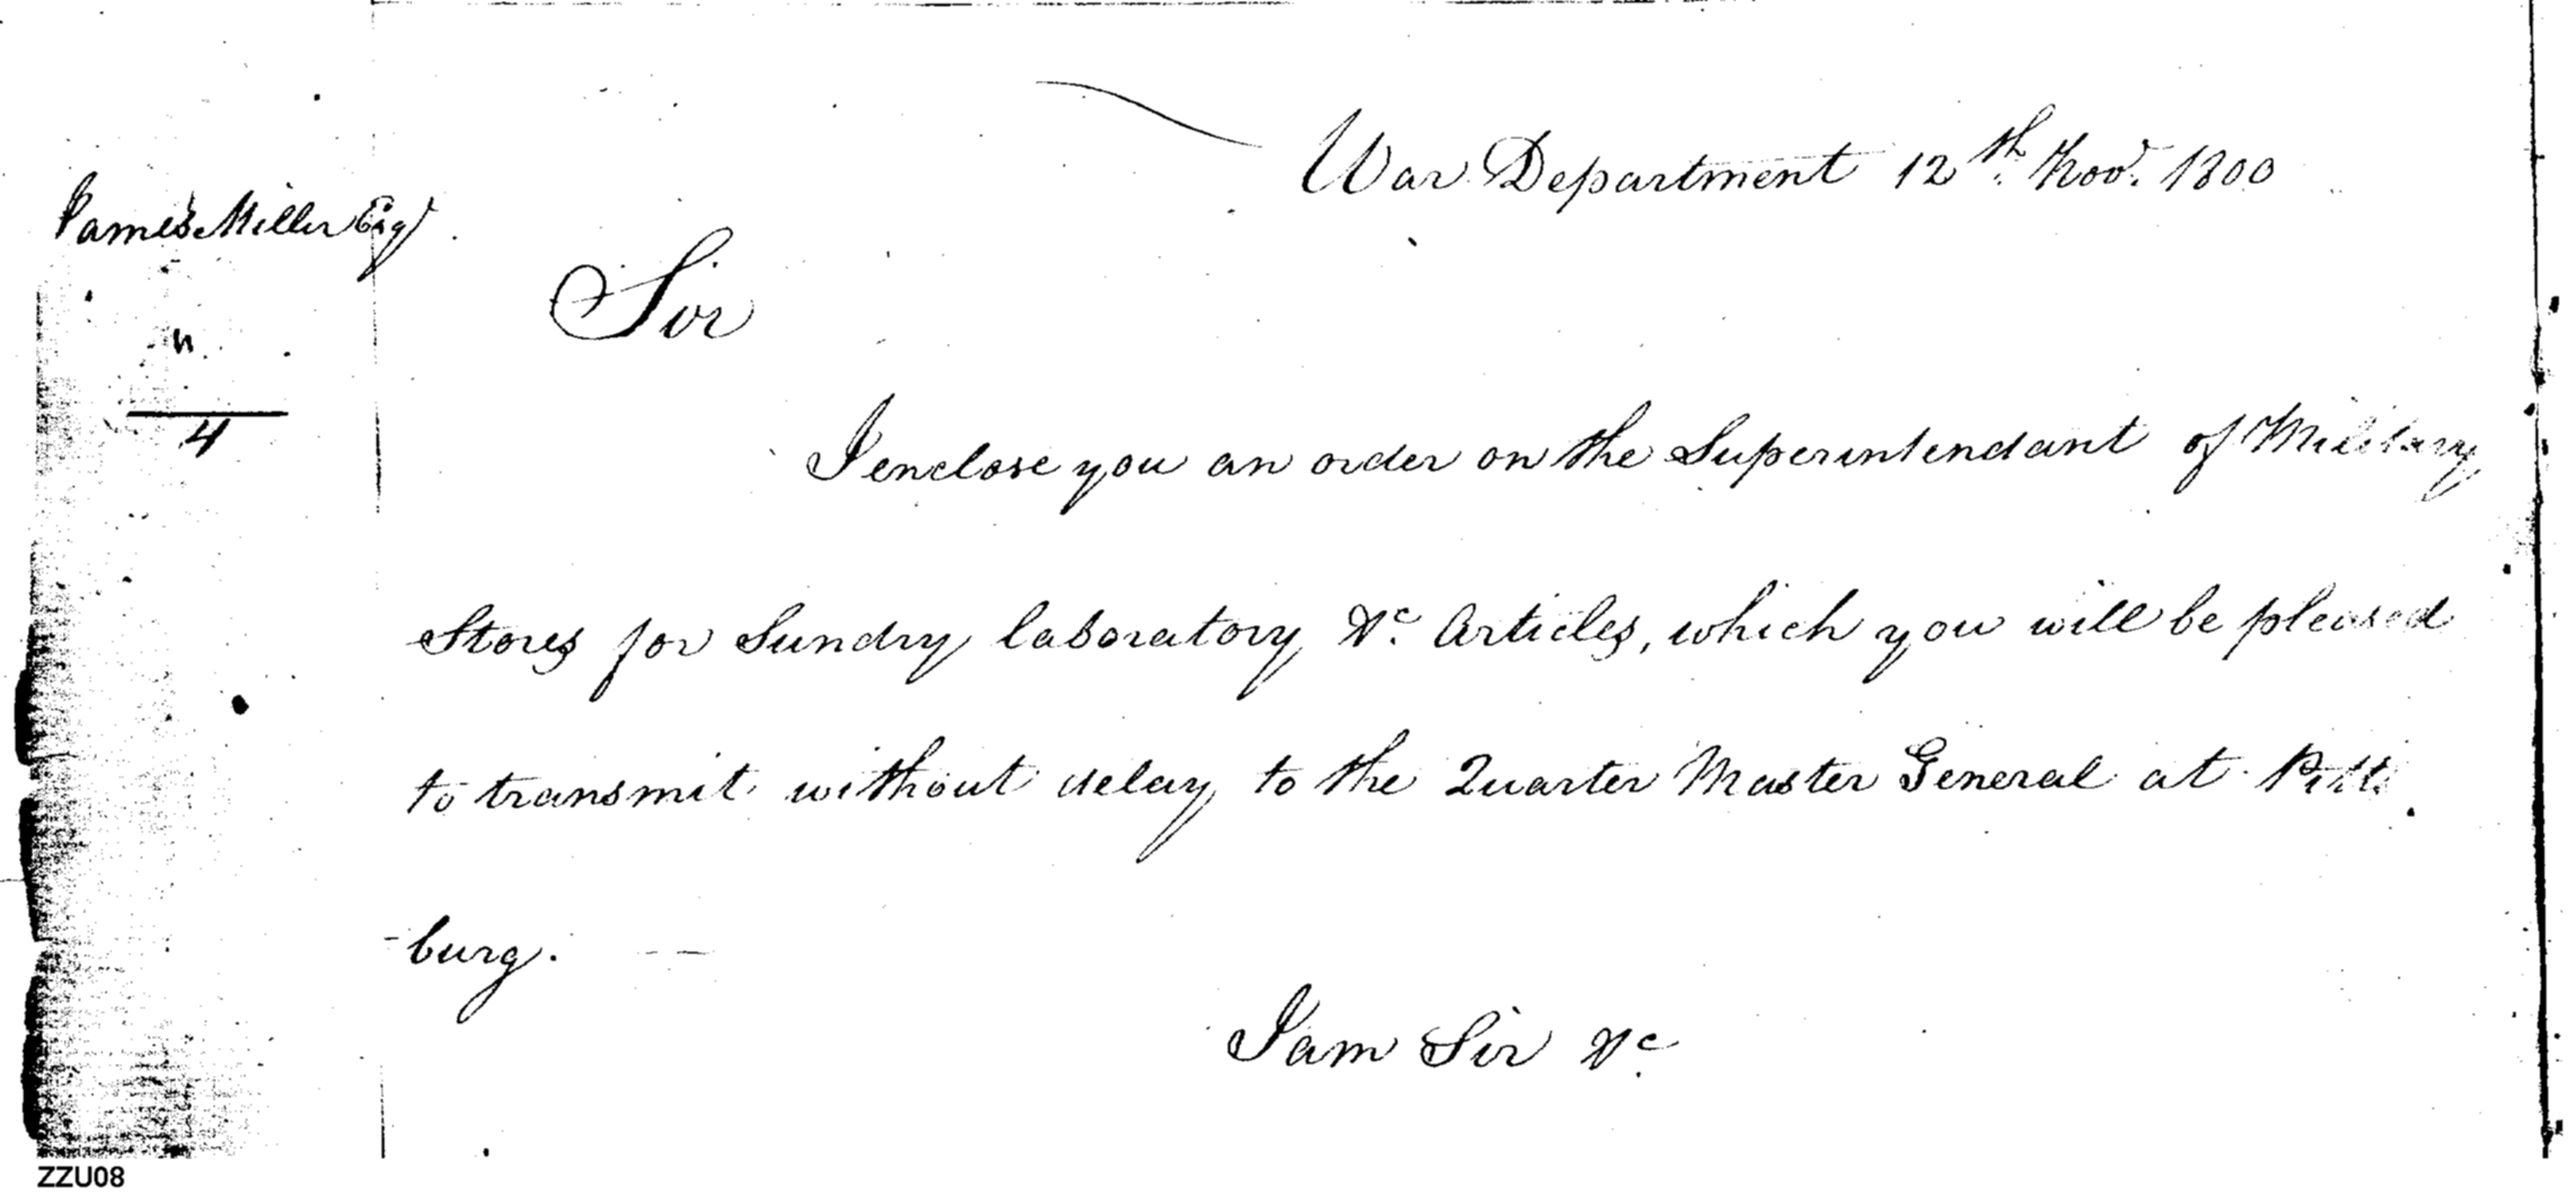 War Department 12th. Novr. 1800
James Miller Esqr
Sir
4
I enclose you an order on the Superintendant of Military
Stores for Sundry laboratory &c. Articles, which you will be pleased
to transmit without delay to the Quarter Master General at Pitts
-burg.
I am Sir &c.
ZZU08